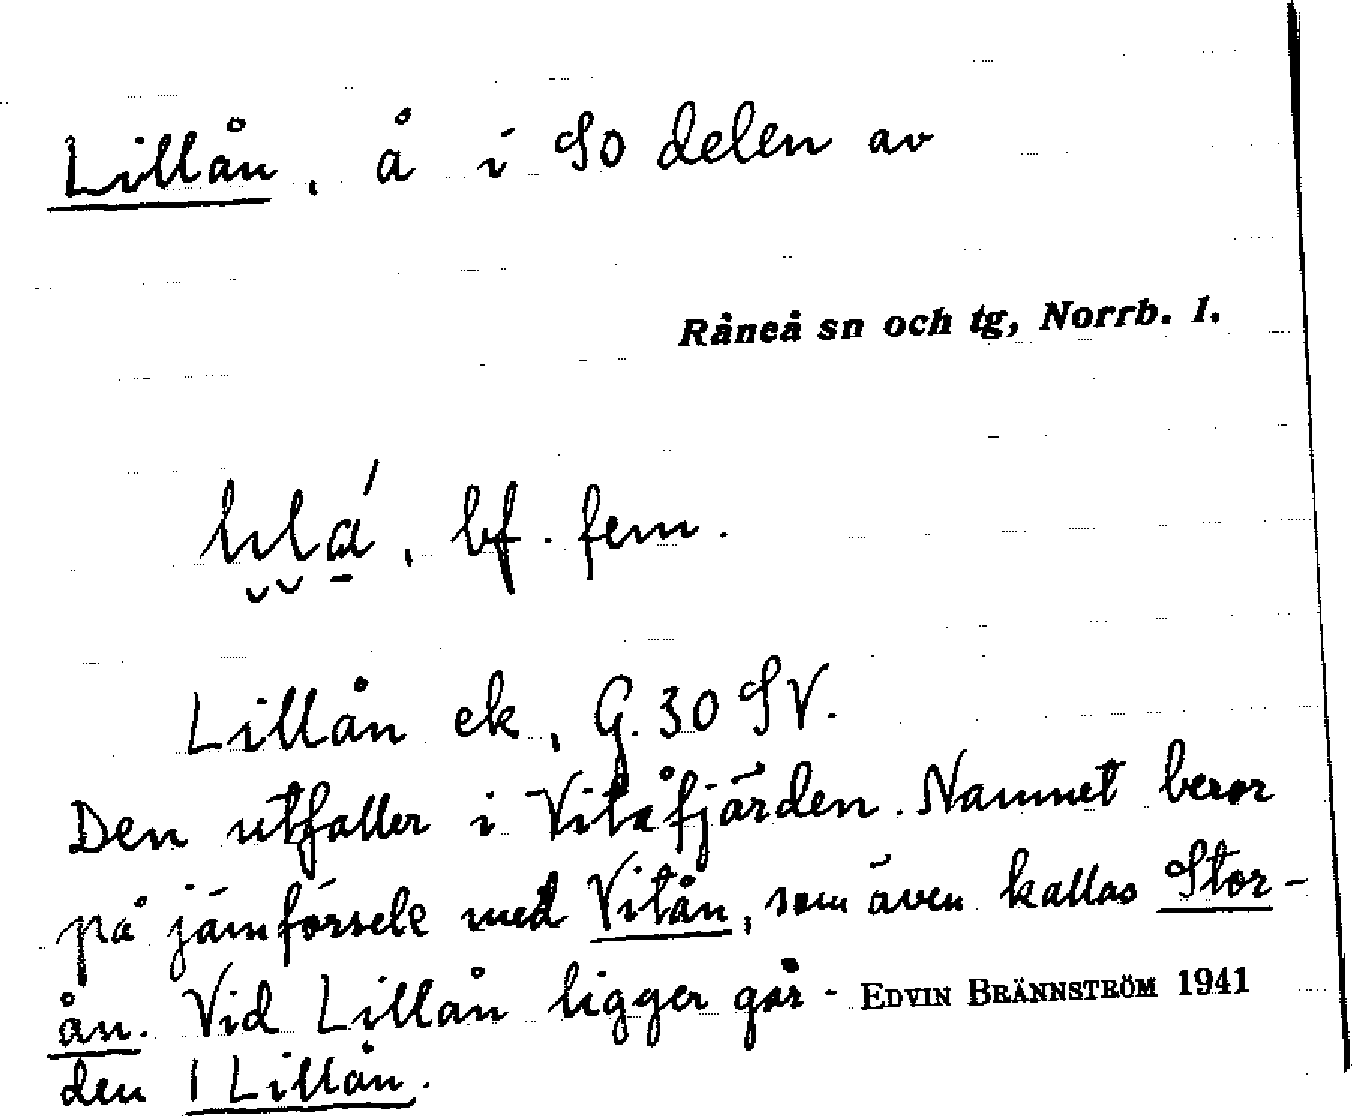 Lillån, å i SO delen av
Råneå sn och tg, Norrb. l.
bf. fem.
Lillån ek, G. 30 SV.
Den utfaller i Vitåfjärden. Namnet beror
på jämförsele med Vitån, som även kallas Stor-
ån. Vid Lillån ligger går-
EDVIN BRÄNNSTRÖM 1941
den 1 Lillån.